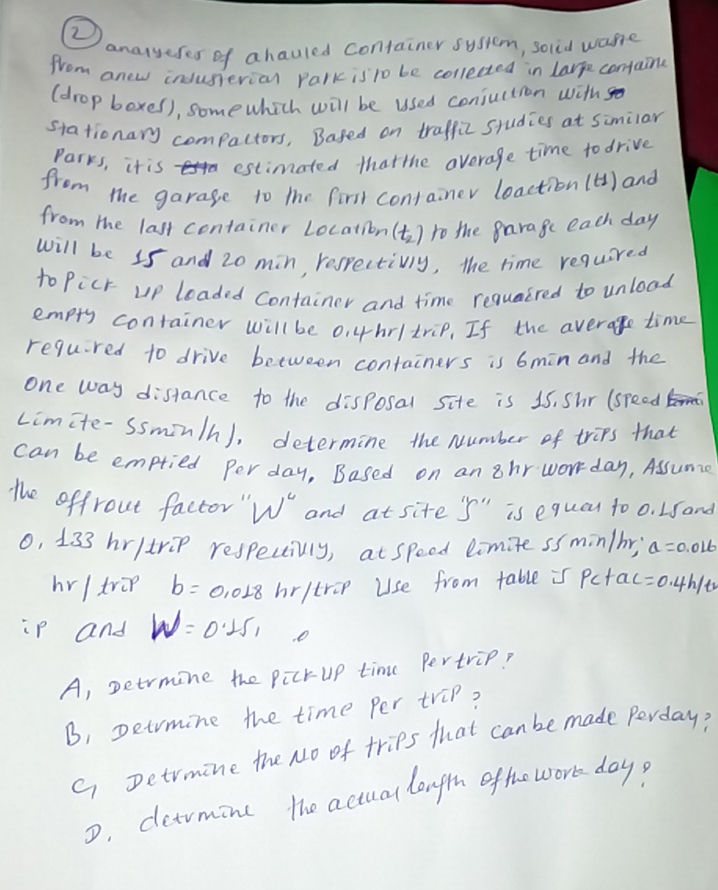 ② analyeses of a hauled container system, solid waste
from anew industerial Park is to be collected in large containe
(drop boxes), some which will be used conjuction with
stationary compactors, Based on traffic studies at similar
Parks, it is estimated that the average time to drive
from the garage to the first container loaction (t1) and
from the last container Location (t2) to the garage each day
will be 15 and 20 min, respectivly, the time required
to pick up loaded container and time requaired to unload
empty container will be 0.4 hr/trip, If the average time
required to drive between containers is 6 min and the
one way distance to the disposal site is 15.5hr (speed
Limite- 55min/h), determine the Number of trips that
can be emptied Per day, Based on an 8 hr work day, Assume
the offrout factor "W" and at site "s" is equal to 0.15 and
0.133 hr/trip respectivly, at speed limite 55 min/hr; a=0.016
hr/trip b=0.018 hr/trip Use from table is Pc+ac=0.4h/tr
ip and W=0.15,
A, Detrmine the Pick up time Per trip?
B, Detrmine the time per trip?
C, Detrmine the No of trips that can be made Perday?
D, detrmine the actual length of the work day?